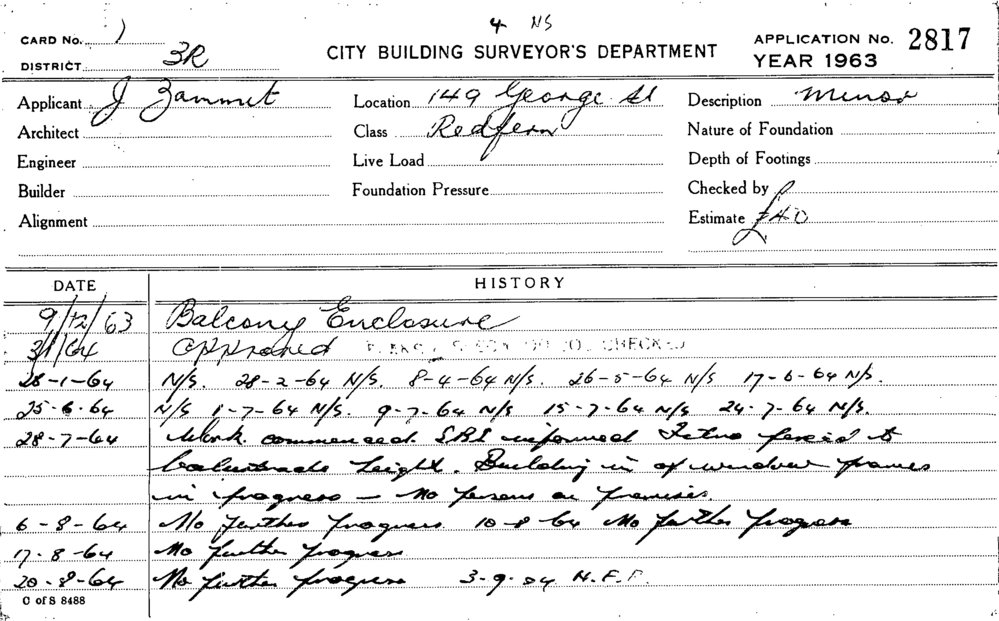 4 NS
CARD No. 1
DISTRICT 3R
CITY BUILDING SURVEYOR'S DEPARTMENT
APPLICATION No. 2817
YEAR 1963
Applicant J Zammit
Location 149 George St
Description Minor
Architect
Class Redfern
Nature of Foundation
Engineer
Live Load
Depth of Footings
Builder
Foundation Pressure
Checked by
Alignment
Estimate £40
DATE HISTORY
9/12/63 Balcony Enclosure
3/1/64 approved CHECKED
28-1-64 N/S. 28-2-64 N/S. 8-4-64 N/S. 26-5-64 N/S 17-6-64 N/S.
25-6-64 N/S 1-7-64 N/S. 9-7-64 N/S 15-7-64 N/S 24-7-64 N/S.
28-7-64 Work commenced informed to
balustrade height. Building in of window frames
in progress - No persons on premises.
6-8-64 No further progress 10-8-64 No further progress
17-8-64 No further progress
20-8-64 No further progress 3-9-64 N.F.P.
C of S 8488